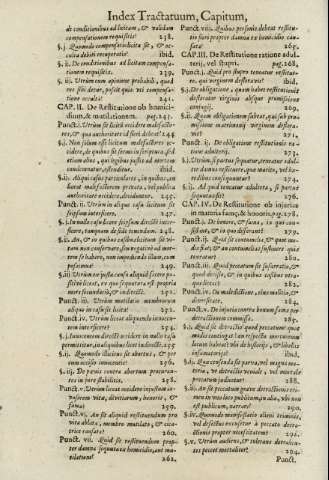 Index Tractatuum, Capitum,
de conditionibus ad licitam, & validam
compensationem requisitis? 238.
§. j. Quomodo compensatio licita sit, & oc-
culta debiti recuperatio? ibid.
§. ij. De conditionibus ad licitam compensa-
tionem requisitis. 239.
§. iij. Utrum cum opinione probabili, quod
res sibi debetur, possit quis uti compensa-
tione occulta? 241.
CAP. II. De Restitutione ob homici-
dium, & mutilationem. pag. 243.
Punct. i. Utrum sit licitum occidere malefacto-
res, & qua authoritate id fieri debeat? 244
§. j. Non solum esse licitum malefactores oc-
cidere, de quibus sit sermo in scriptura, sed
etiam alios, qui legibus justis ad mortem
condemnantur, ostenditur. ibid.
§. ij. Aliqui casus particulares, in quibus, an
liceat malefactorem privata, vel publica
authoritate occidere, deciduntur. 245.
Punct. ij. Utrum in aliquo casu licitum sit
seipsum interficere. 247.
§. j. In nullo casu licere seipsum directe inter-
ficere, tanquam de fide tenendum. 248.
§. ij. An, & in quibus casibus, licitum sit vi-
tam non conservare, seu negative ad mor-
tem se habere, non impediendo illam, cum
possumus? 249.
§. iij. Utrum ex justa causa aliquid facere po-
sitive liceat, ex quo sequatur est propria
mors secundario, & indirecte. 252.
Punct. iij. Utrum mutilatio membrorum
aliquo in casu sit licita? 253.
Punct. iv. Utrum liceat aliquando innocen-
tem interficere? 254.
§. j. Innocentem directe occidere in nullo casu
permittitur, at aliquibus licet indirecte. ibid.
§. ij. Quomodo illicitus sit abortus, & par-
tum occisio innocentis? 256.
§. iij. De pœnis contra abortum procuran-
tes in jure stabilitis. 258.
Punct. v. Utrum liceat occidere injustum in-
vasorem vitæ, divitiarum, honoris, &
famæ? 259.
Punct. vj. An sit aliquid restituendum pro
vita ablata, membro mutilato, & cica-
trice causata? 260.
Punct. vij. Quid sit restituendum prop-
ter damna sequuta ex homicidio, aut mu-
tilatione? 262.
Punct. viij. Quibus personis debeat restitu-
tio fieri propter damna ex homicidio cau-
sata? 265.
CAP. III. De Restitutione ratione adul-
terij, vel stupri. pag. 268.
Punct. j. Quid pro stupro teneatur restitue-
re, qui virginem defloravit? ibid.
§. j. De obligatione, quam habet restituendi
deflorator virginis absque promissione
conjugij. 269.
§. ij. Quam obligationem habeat, qui sub pro-
missione matrimonij virginem deflora-
vit? 271.
Punct. ij. De obligatione restitutionis ra-
tione adulterij. 273.
§. j. Utrum, si partus sequatur, teneatur adul-
ter damna resarcire, cum matrem fecundæ
adulterio? 274.
§. ij. Ad quid teneatur adultera, si partus
sequatur? 276.
CAP. IV. De Restitutione ob injuriam
in materia famæ, & honoris, pag. 278.
Punct. j. De honore, & fama, in quo con-
sistat, & in quo distinguatur? 279.
Punct. ij. Quid sit contumelia, & quot mo-
dis fiat, & an contumeliosus restituere quid
teneatur? 280.
Punct. iij. Quid peccatum sit susurratio, &
quod derisio, & in quibus casibus utra-
que liceat? 282.
Punct. iv. Cui maledictione, ejus malitia, &
diversitate. 284.
Punct. v. De injustitia contra bonum famæ per
detractionem commissa. 286.
§. j. Quid sit detractio? quod peccatum? quot
modis contingat? & an leviter peccet, qui
detrahit ex animi levitate, & sine
infamationis? ibid.
§. ij. Quæ causæ facta, & parva, vel magna ma-
teria, ex detractionis veniali, & vel mor-
talitate peccatum judicatur? 288.
§. iij. An sit peccatum grave detractio cri-
minis in uno loco publici, in alio, ubi non
est publicum, narrare? 290.
§. iv. Quomodo manifestatio alieni criminis,
vel defectus suspicetur à peccato detra-
ctionis excusari? 293.
§. v. Utrum audiens, & tolerans detractio-
nes peccet mortaliter? 294.
Punct.